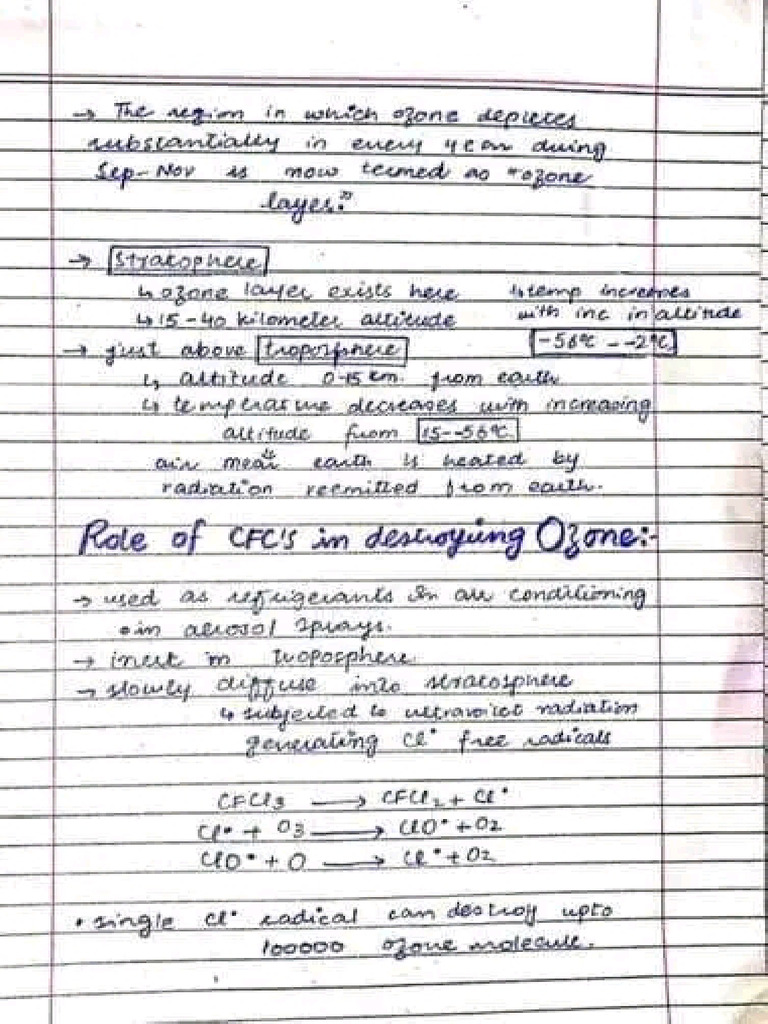 → The region in which ozone depletes
substantially in every year during
Sep-Nov is now termed as "ozone
layes."
→ Stratosphere
↳ ozone layer exists here
↳ temp increases
↳ 15-40 kilometer altitude
with inc in altitude
-56°C - -2°C
→ just above troposphere
↳ altitude 0-15 km. from earth
↳ temperature decreases with increasing
altitude from 15--56°C
air near earth is heated by
radiation reemitted from earth.
Role of CFC'S in destroying Ozone:-
→ used as refrigerants in air conditioning
• in aerosol sprays.
→ inert in troposphere
→ slowly diffuse into stratosphere
↳ subjected to ultraviolet radiation
generating Cl• free radicals
CFCl3 → CFCl2 + Cl•
Cl• + O3 → ClO• + O2
ClO• + O → Cl• + O2
• single Cl• radical can destroy upto
100000 ozone molecule.